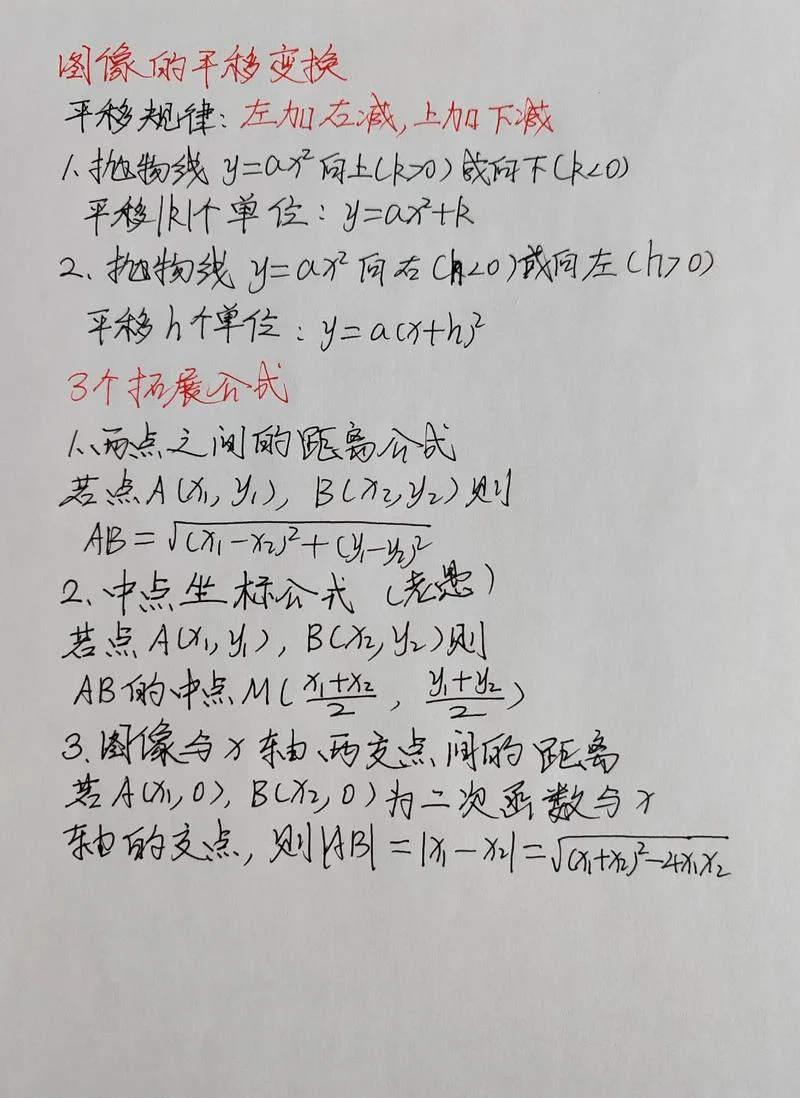 图像的平移变换
平移规律:左加右减,上加下减
1.抛物线 y=ax²向上(k>0)或向下(k<0)
平移|k|个单位:y=ax²+k
2、抛物线 y=ax²向右(h<0)或向左(h>0)
平移h个单位:y=a(x+h)²
3个拓展公式
1、两点之间的距离公式
若点A(x₁,y₁),B(x₂,y₂)则
AB=√((x₁-x₂)²+(y₁-y₂)²)
2、中点坐标公式(老愚)
若点A(x₁,y₁),B(x₂,y₂)则
AB的中点M((x₁+x₂)/2,(y₁+y₂)/2)
3.图像与x轴两交点间的距离
若A(x₁,0),B(x₂,0)为二次函数与x
轴的交点,则|AB|=|x₁-x₂|=√((x₁+x₂)²-4x₁x₂)